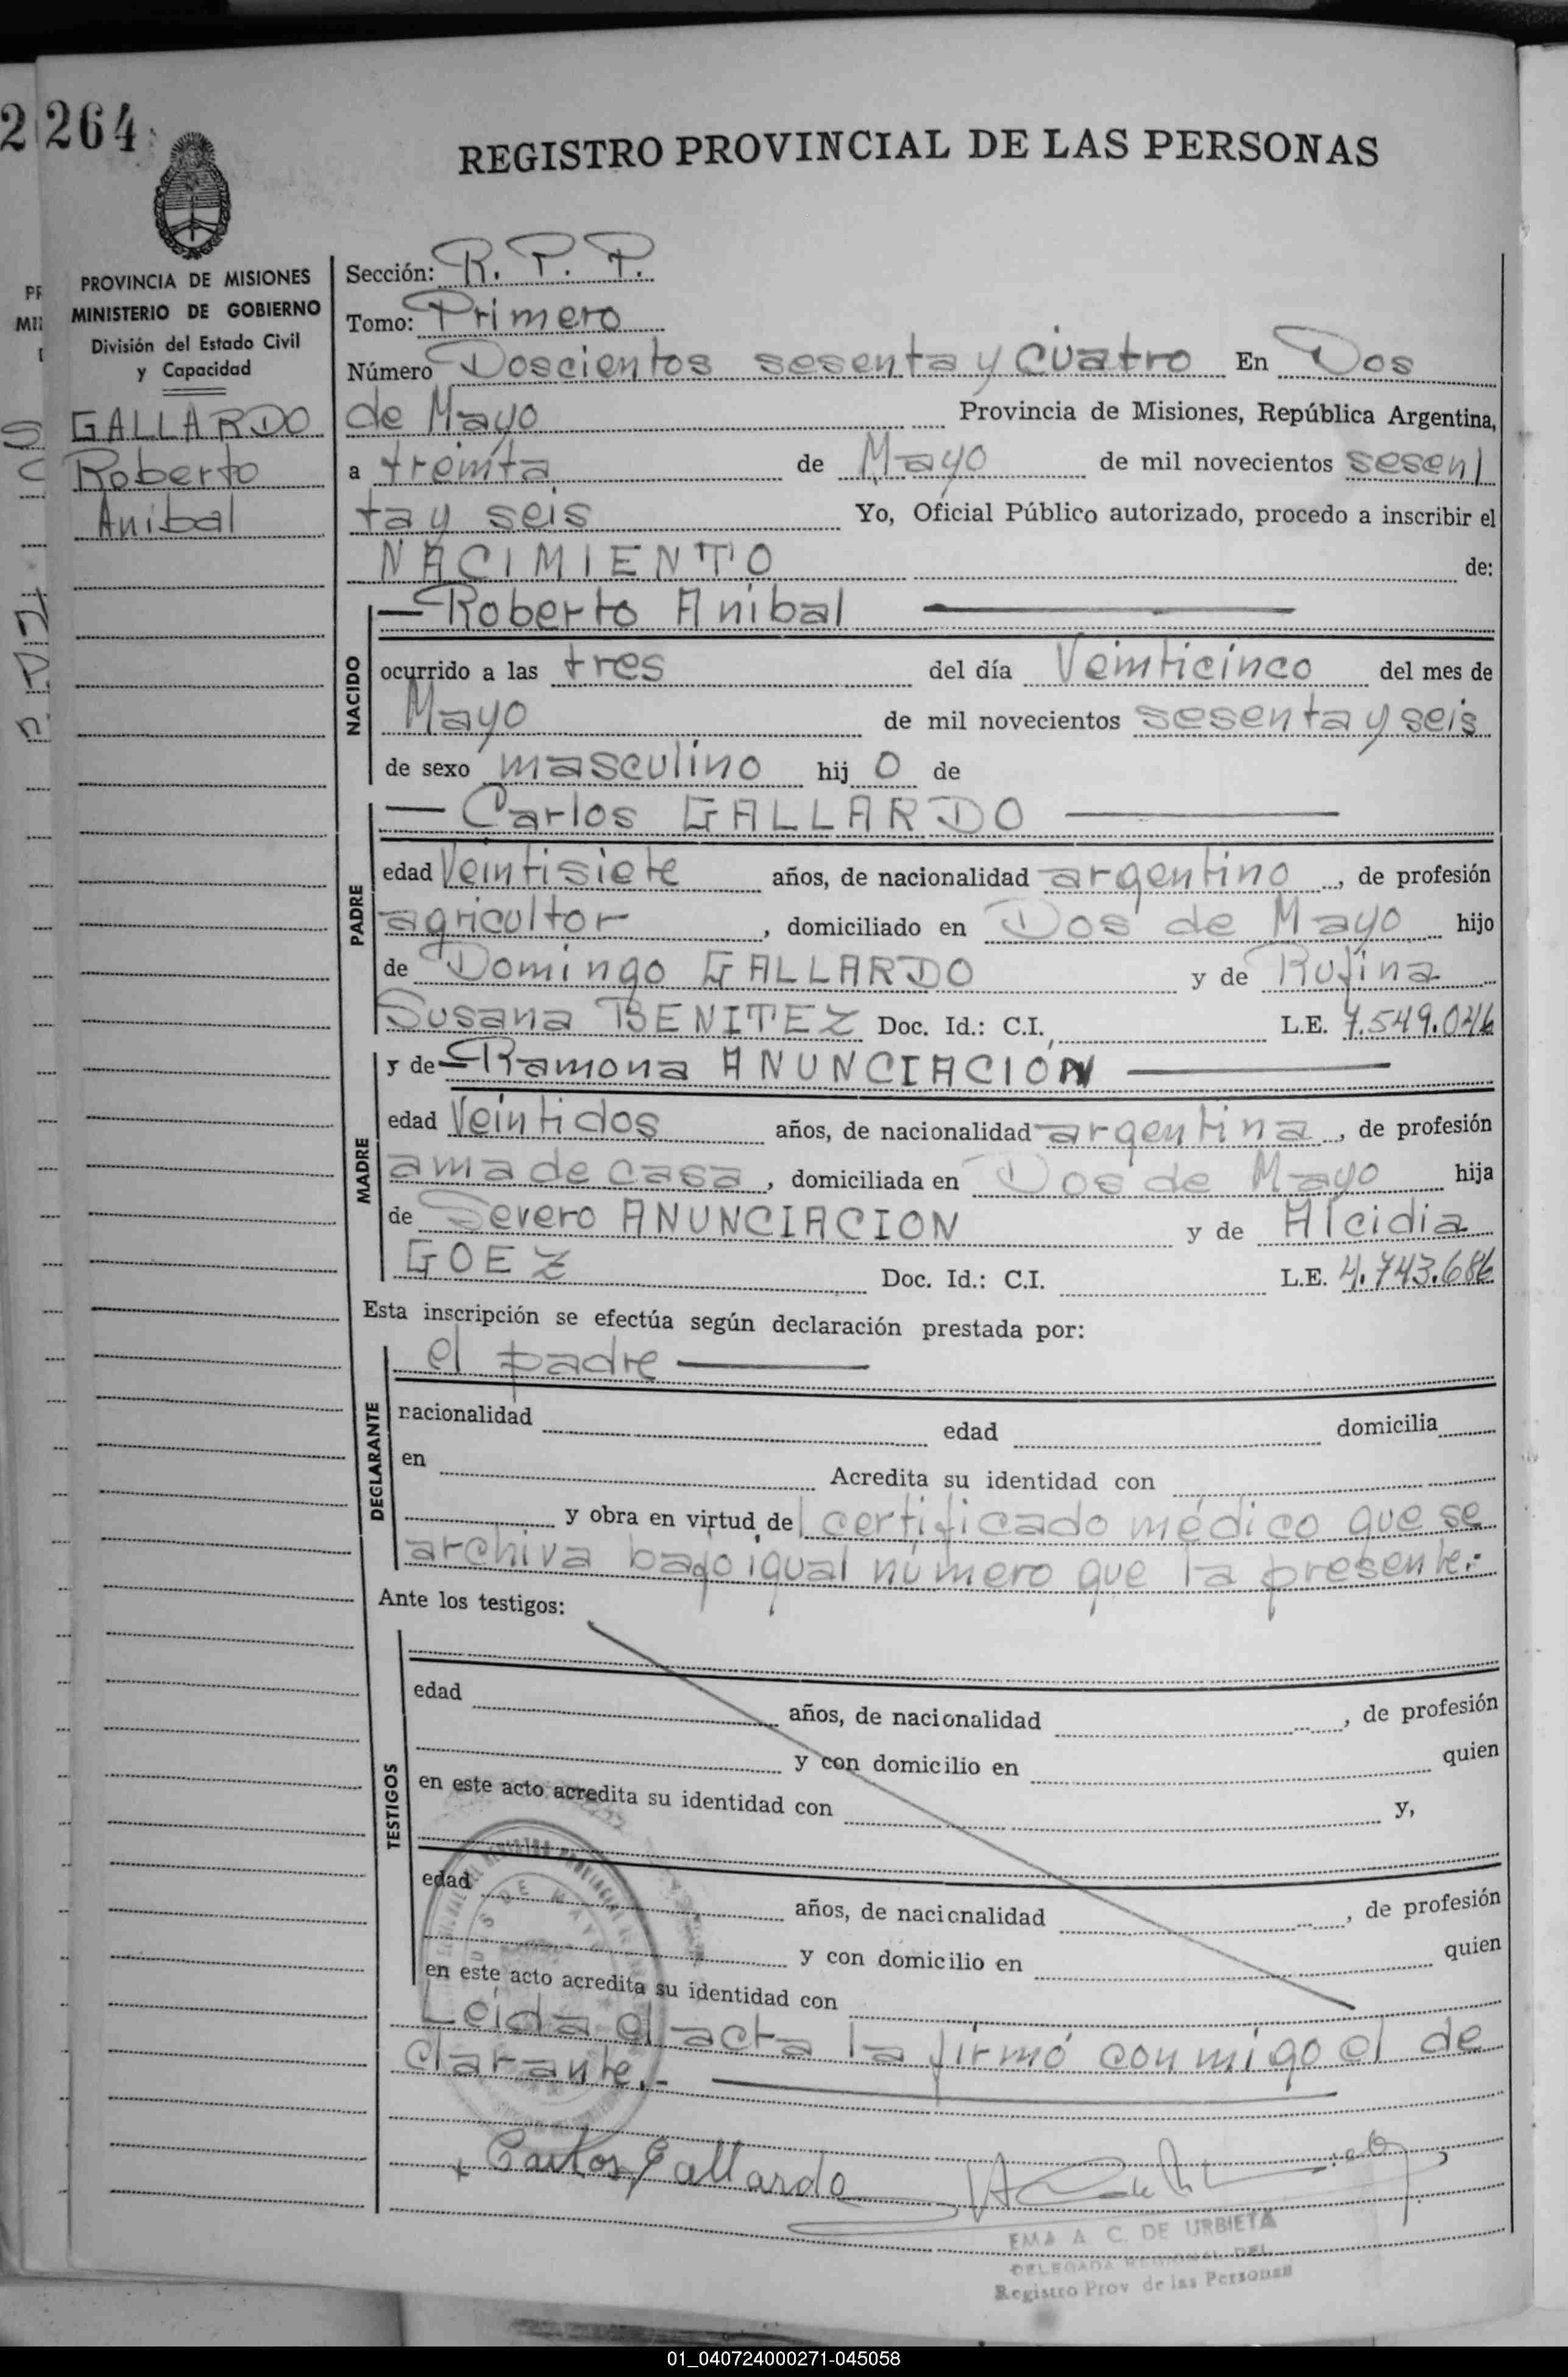 264
REGISTRO PROVINCIAL DE LAS PERSONAS
PROVINCIA DE MISIONES
MINISTERIO DE GOBIERNO
División del Estado Civil
y Capacidad
GALLARDO
Roberto
Anibal
Sección: R. P. P.
Tomo: Primero
Número Doscientos sesenta y cuatro En Dos
de Mayo Provincia de Misiones, República Argentina,
a treinta de Mayo de mil novecientos sesen
ta y seis Yo, Oficial Público autorizado, procedo a inscribir el
NACIMIENTO de:
NACIDO
Roberto Anibal
ocurrido a las tres del día Veinticinco del mes de
Mayo de mil novecientos sesenta y seis
de sexo masculino hij o de
PADRE
Carlos GALLARDO
edad Veintisiete años, de nacionalidad argentino, de profesión
agricultor, domiciliado en Dos de Mayo hijo
de Domingo GALLARDO y de Rufina
Susana BENITEZ Doc. Id.: C.I. L.E. 7.549.046
MADRE
y de Ramona ANUNCIACION
edad Veintidos años, de nacionalidad argentina, de profesión
ama de casa, domiciliada en Dos de Mayo hija
de Severo ANUNCIACION y de Alcidia
GOEZ Doc. Id.: C.I. L.E. 4.743.686
Esta inscripción se efectúa según declaración prestada por:
DEGLARANTE
el padre
nacionalidad edad domicilia
en Acredita su identidad con
y obra en virtud de l certificado médico que se
archiva bajo igual número que la presente.-
Ante los testigos:
TESTIGOS
edad años, de nacionalidad , de profesión
y con domicilio en quien
en este acto acredita su identidad con y,
edad años, de nacionalidad , de profesión
y con domicilio en quien
en este acto acredita su identidad con
Leida el acta la firmó conmigo el de
clarante.-
Carlos Gallardo
EMA A. C. DE URBIETA
DELEGADA REGIONAL DEL
Registro Prov de las Personas
01_040724000271-045058